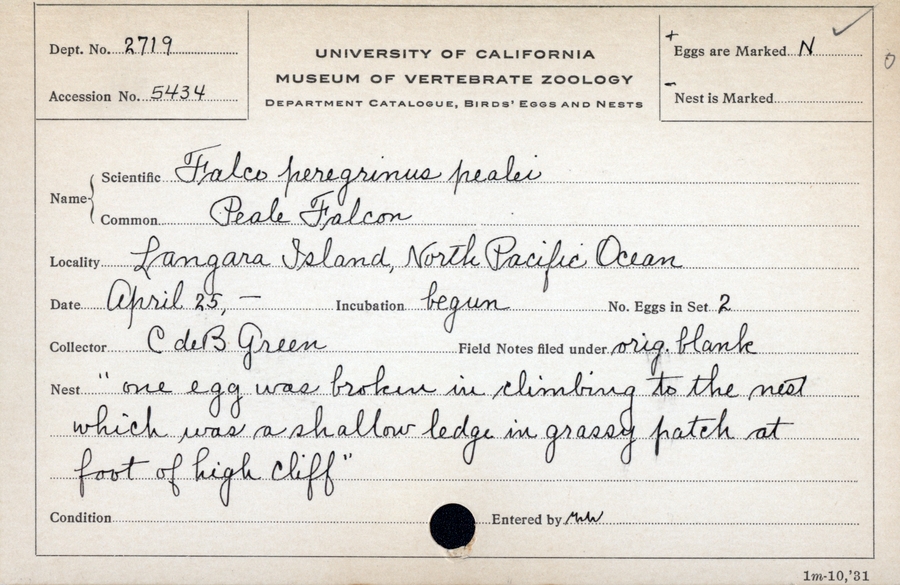 Dept. No. 2719
Accession No. 5434
UNIVERSITY OF CALIFORNIA
MUSEUM OF VERTEBRATE ZOOLOGY
DEPARTMENT CATALOGUE, BIRDS' EGGS AND NESTS
+ Eggs are Marked N
- Nest is Marked
0
Name
Scientific Falco peregrinus pealei
Common Peale Falcon
Locality Langara Island, North Pacific Ocean
Date April 25, — Incubation begun No. Eggs in Set 2
Collector C deB Green Field Notes filed under orig. blank
Nest " one egg was broken in climbing to the nest
which was a shallow ledge in grassy patch at
foot of high cliff"
Condition Entered by
1m-10,'31